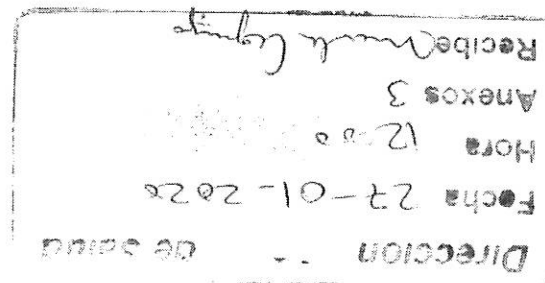 Dirección de Salud
Fecha 27-01-2020
Hora 12:00
Anexos 3
Recibe